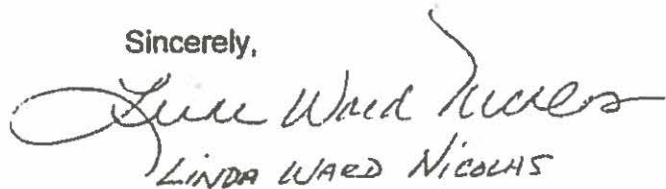 Sincerely,
Linda Ward Nicolas
LINDA WARD NICOLAS